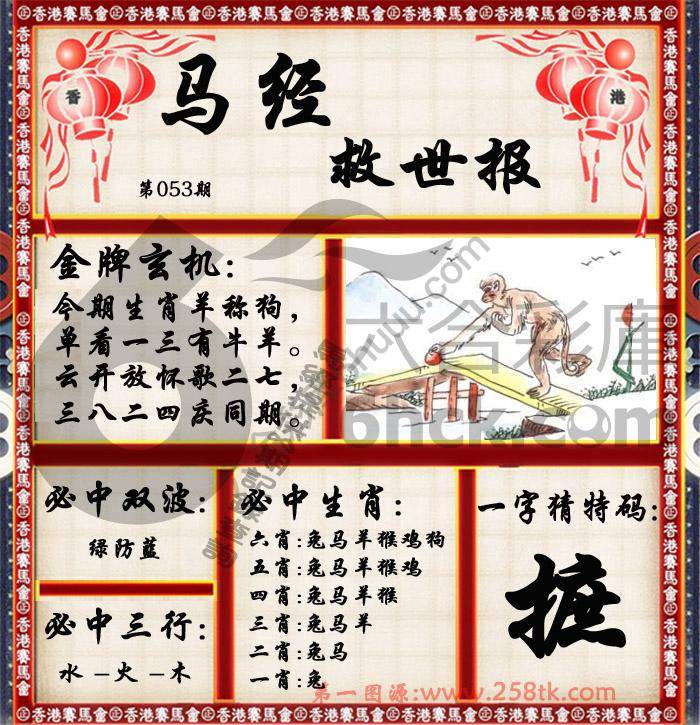 香港賽馬會
香
港
马经
救世报
第053期
金牌玄机:
今期生肖羊称狗，
单看一三有牛羊。
云开放怀歌二七，
三八二四庆同期。
六合彩庫
6hck.com
必中双波:
绿防蓝
必中三行:
水-火-木
必中生肖:
六肖:兔马羊猴鸡狗
五肖:兔马羊猴鸡
四肖:兔马羊猴
三肖:兔马羊
二肖:兔马
一肖:兔
一字猜特码:
摭
第一图源:www.258tk.com